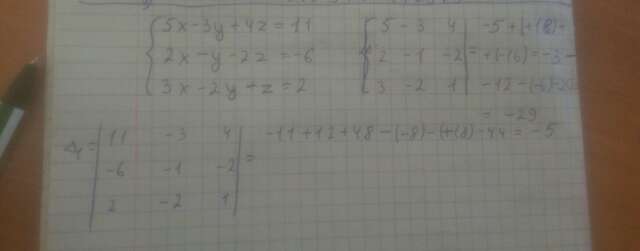 5x-3y+4z=11
2x-y-2z=-6
3x-2y+z=2
5 -3 4
2 -1 -2
3 -2 1
-5+(+18)+
+(-16)=-3-
-12-(-6)-20
= -29
Δ₁=
11 -3 4
-6 -1 -2
2 -2 1
=
-11+12+48-(-8)-(+18)-44=-5